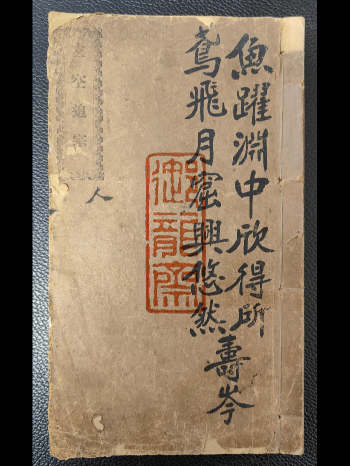 魚躍淵中欣得所
鳶飛月窟興悠然
壽岑
御龍齋
空
人